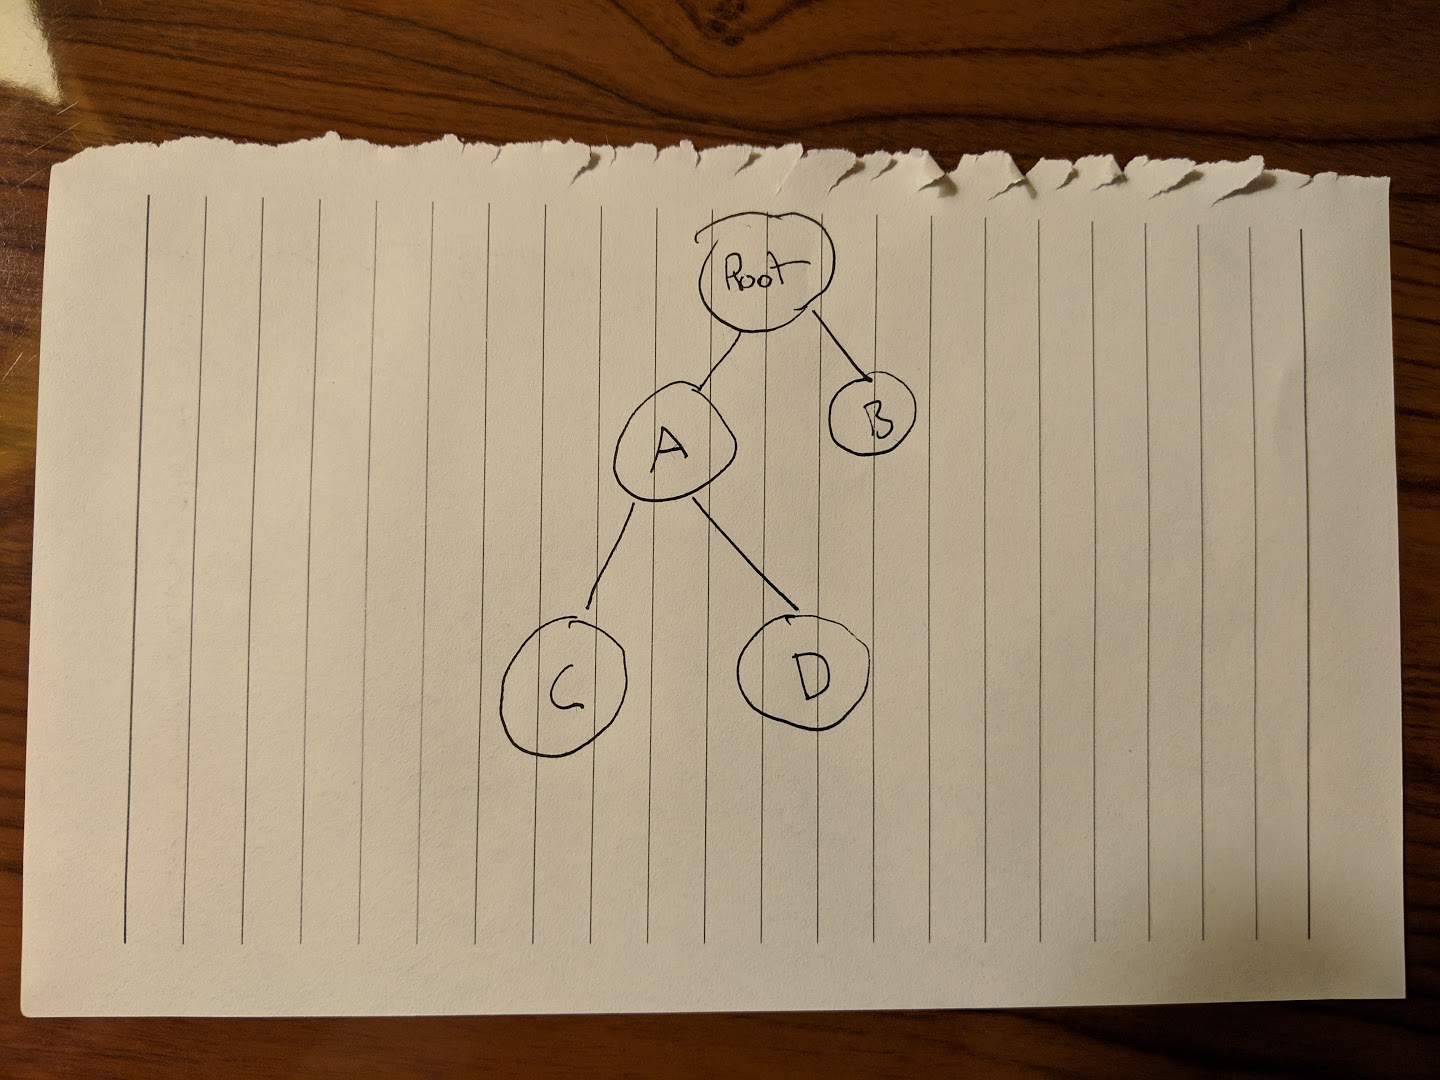 Root
A
B
C
D